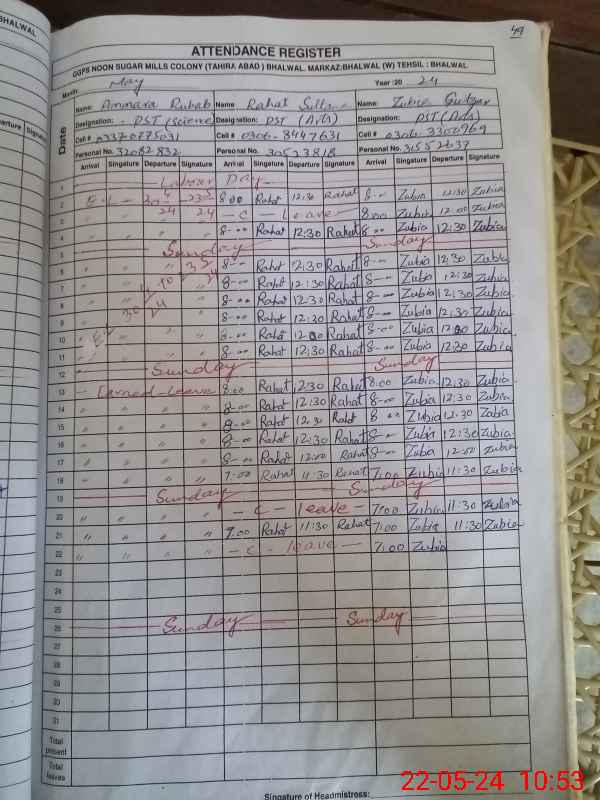 BHALWAL
59
ATTENDANCE REGISTER
GGPS NOON SUGAR MILLS COLONY (TAHIRA ABAD) BHALWAL. MARKAZ:BHALWAL (W) TEHSIL : BHALWAL
Month: May Year :20 24
Date
Name: Ammara Rubab Name Rahat Sultana Name: Zubia Gulzar
Designation: PST (Science) Designation: PST (Arts) Designation: PST (Arts)
Cell # 03370775031 Cell # 0306-8447631 Cell #
Personal No. 32082832 Personal No. 30523818 Personal No. 31552637
Arrival Singature Departure Signature Arrival Singature Departure Signature Arrival Singature Departure Signature
1 Labour Day
2 E-L 8:00 Rahat 12:30 Rahat 8:00 Zubia 12:30 Zubia
3 24 24 - C - Leave 8:00 Zubia 12:00 Zubia
4 8:00 Rahat 12:30 Rahat 8:00 Zubia 12:30 Zubia
5 Sunday Sunday
6 8:00 Rahat 12:30 Rahat 8:00 Zubia 12:30 Zubia
7 8:00 Rahat 12:30 Rahat 8:00 Zubia 12:30 Zubia
8 8:00 Rahat 12:30 Rahat 8:00 Zubia 12:30 Zubia
9 8:00 Rahat 12:30 Rahat 8:00 Zubia 12:30 Zubia
10 8:00 Rahat 12:00 Rahat 8:00 Zubia 12:00 Zubia
11 8:00 Rahat 12:30 Rahat 8:00 Zubia 12:30 Zubia
12 Sunday Sunday
13 - Earned Leave 8:00 Rahat 12:30 Rahat 8:00 Zubia 12:30 Zubia
14 " " " " 8:00 Rahat 12:30 Rahat 8:00 Zubia 12:30 Zubia
15 " " " " 8:00 Rahat 12:30 Rahat 8:00 Zubia 12:30 Zubia
16 " " " " 8:00 Rahat 12:30 Rahat 8:00 Zubia 12:30 Zubia
17 " " " " 8:00 Rahat 12:00 Rahat 8:00 Zubia 12:00 Zubia
18 " " " " 7:00 Rahat 11:30 Rahat 7:00 Zubia 11:30 Zubia
19 Sunday Sunday
20 " " " " - C - leave - 7:00 Zubia 11:30 Zubia
21 " " " " 7:00 Rahat 11:30 Rahat 7:00 Zubia 11:30 Zubia
22 " " " " - C - leave - 7:00 Zubia
23
24
25
26 Sunday Sunday
27
28
29
30
31
Total present
Total leaves
Singature of Headmistress:
22-05-24 10:53